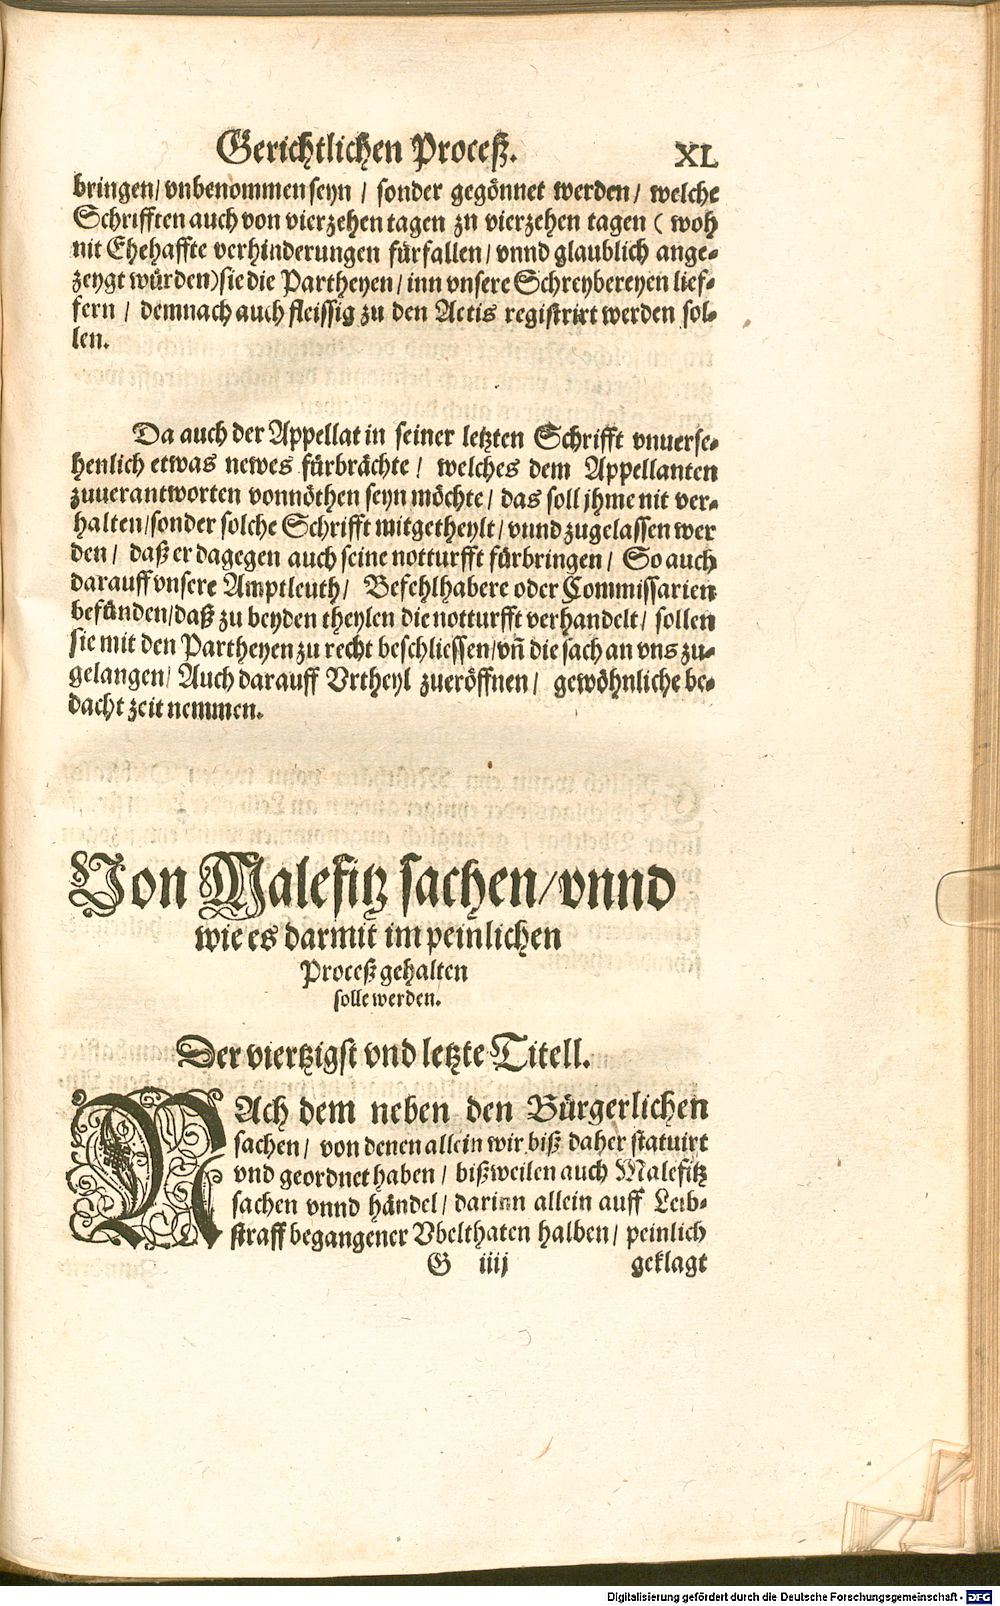 Gerichtlichen Proceß. XL
bringen/ vnbenommen seyn / sonder gegönnet werden/ welche
Schrifften auch von vierzehen tagen zu vierzehen tagen ( woh
nit Ehehaffte verhinderungen fürfallen/ vnnd glaublich ange-
zeygt würden) sie die Partheyen/ inn vnsere Schreybereyen lief-
fern / demnach auch fleissig zu den Actis registrirt werden sol-
len.
Da auch der Appellat in seiner letzten Schrifft vnuerse-
henlich etwas newes fürbrächte / welches dem Appellanten
zuuerantworten vonnöthen seyn möchte/ das soll jhme nit ver-
halten/ sonder solche Schrifft mitgetheylt/ vnnd zugelassen wer
den / daß er dagegen auch seine notturfft fürbringen/ So auch
darauff vnsere Amptleuth/ Befehlhabere oder Commissarien
befünden/ daß zu beyden theylen die notturfft verhandelt/ sollen
sie mit den Partheyen zu recht beschliessen/ vñ die sach an vns zu-
gelangen/ Auch darauff Vrtheyl zueröffnen/ gewöhnliche be-
dacht zeit nemmen.
Von Malefitz sachen/ vnnd
wie es darmit im peinlichen
Proceß gehalten
solle werden.
Der viertzigst vnd letzte Titell.
NAch dem neben den Bürgerlichen
sachen/ von denen allein wir biß daher statuirt
vnd geordnet haben/ bißweilen auch Malefitz
sachen vnnd händel/ darinn allein auff Leib-
straff begangener Vbelthaten halben/ peinlich
G iiij geklagt
Digitalisierung gefördert durch die Deutsche Forschungsgemeinschaft - DFG